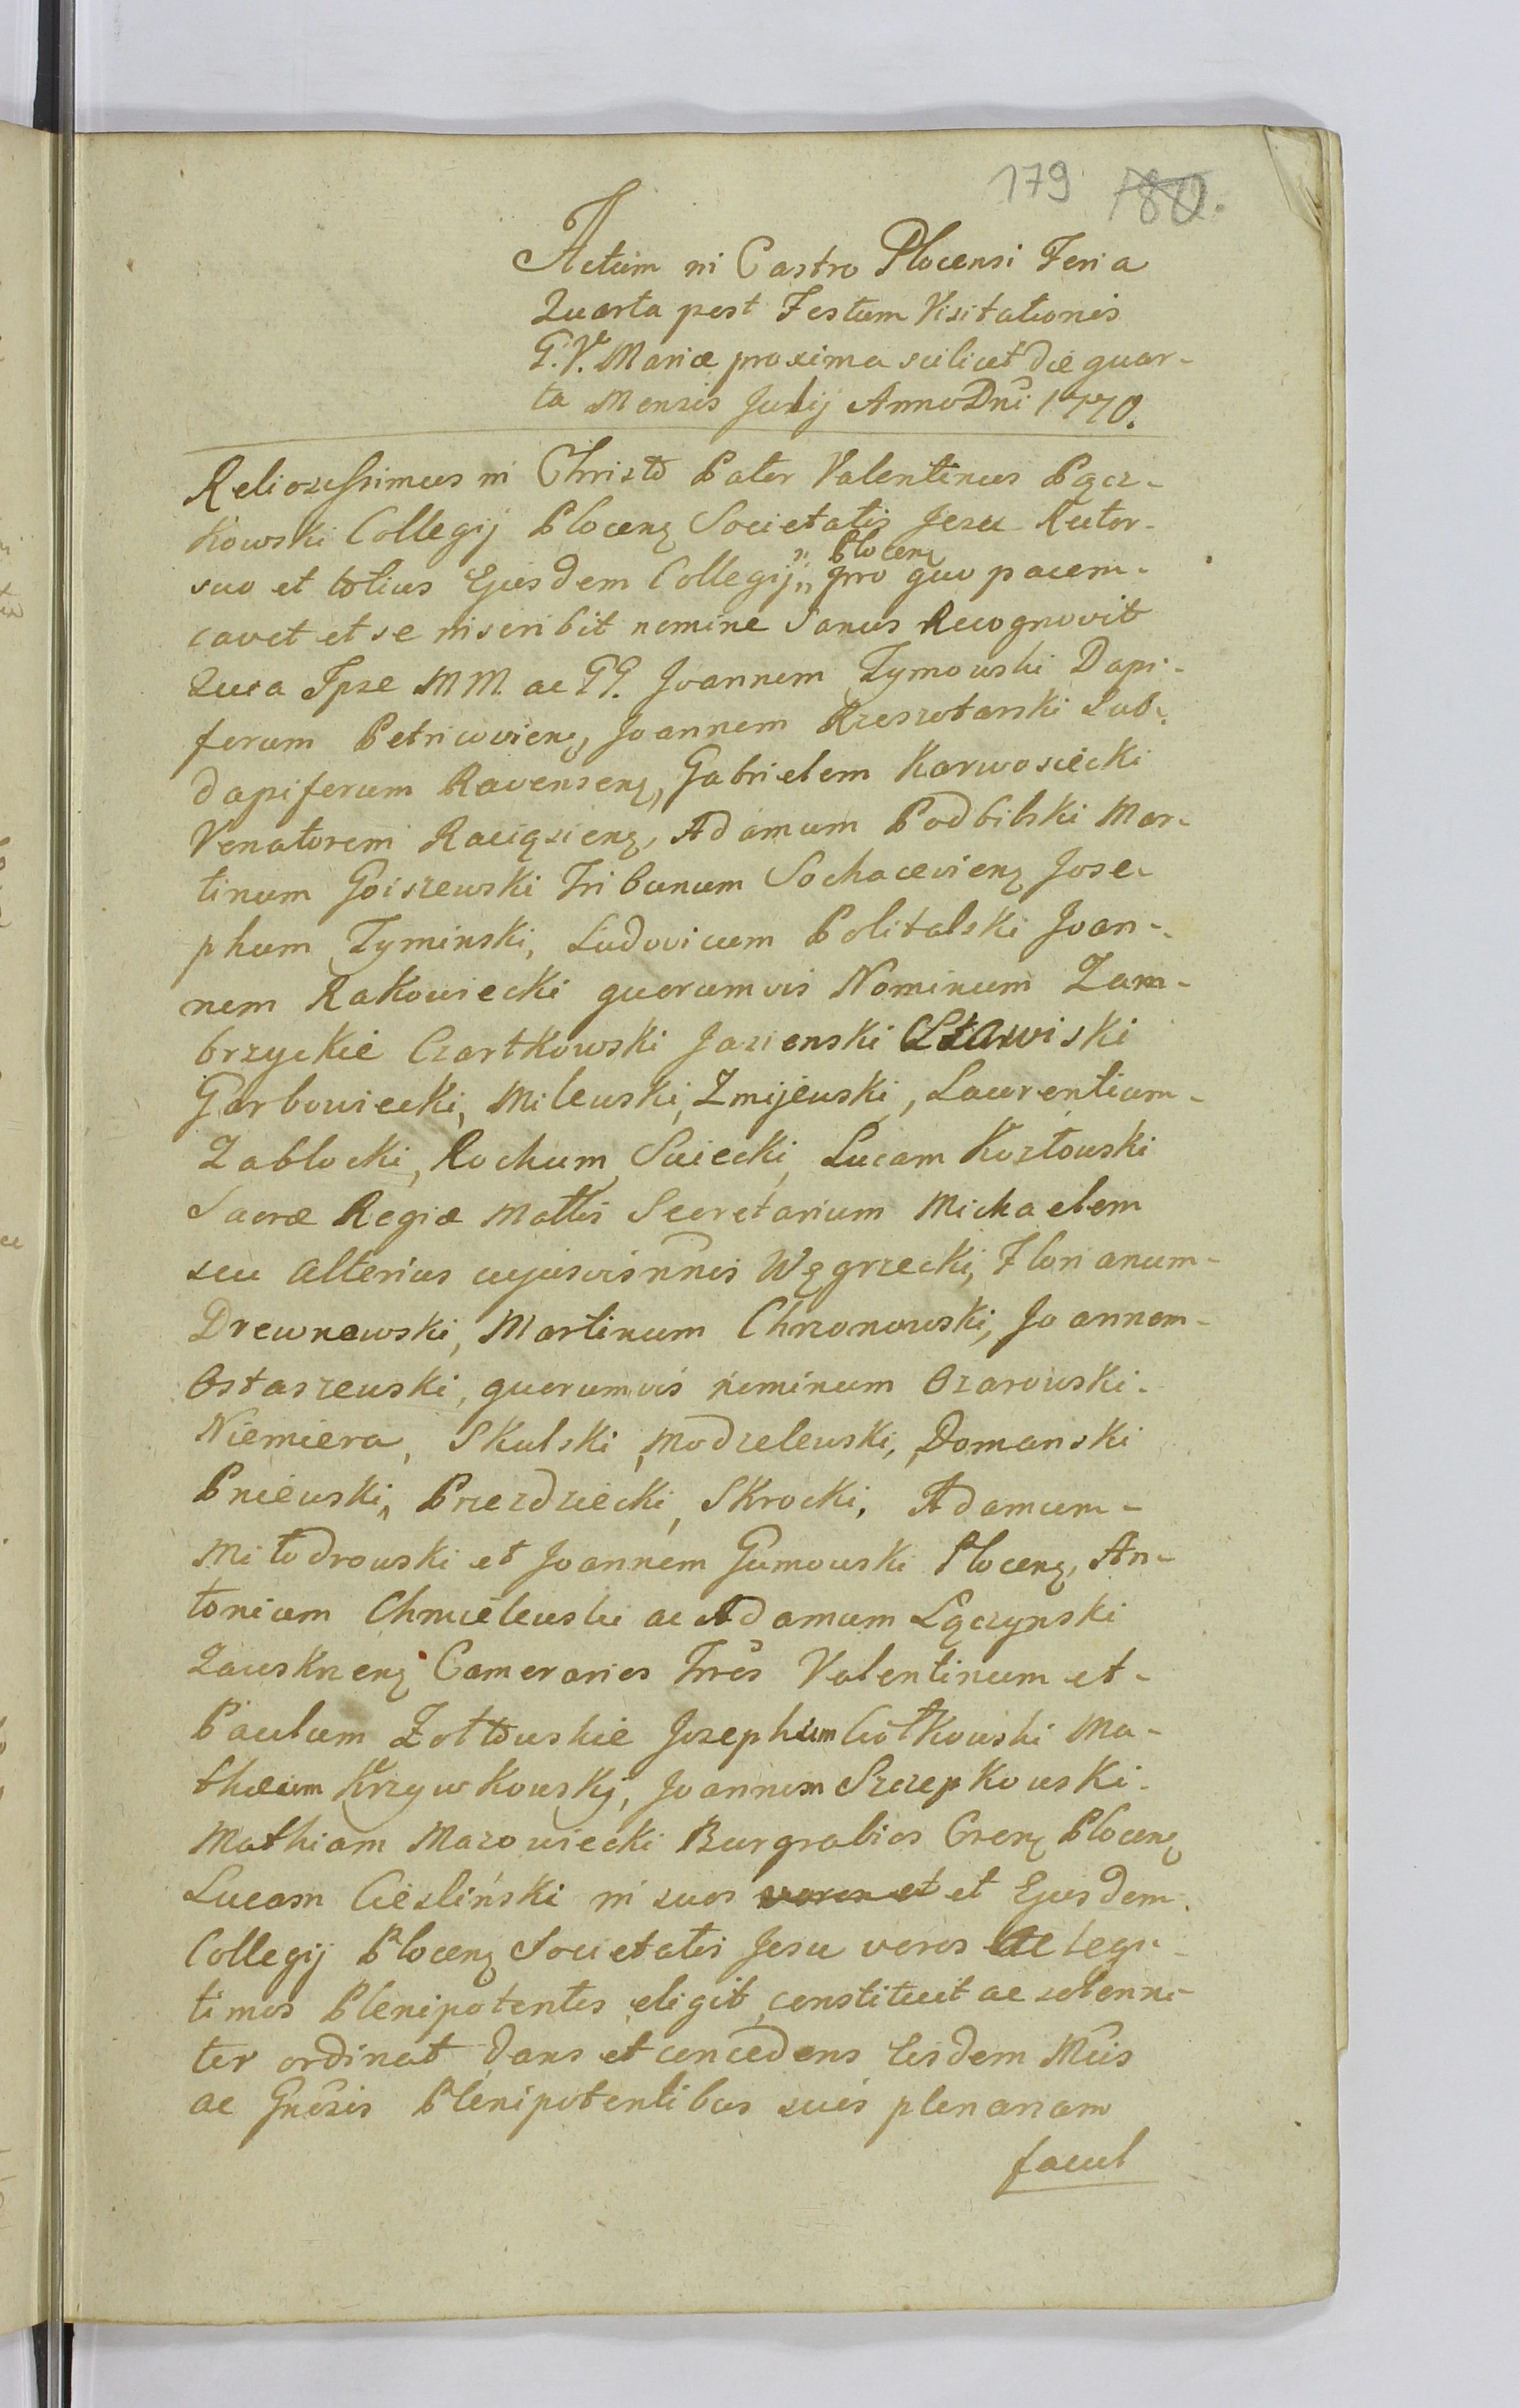 179 180.
Actum in Castro Plocensi Feria
Quarta post Festum Visitationis
G. V. Mariæ proxima scilicet die quar-
ta Mensis Julij Anno Dni 1770.
Reliosissimus in Christo Pater Valentinus Pącz-
kowski Collegij Plocenȝ Societatis Jesu Rector
suo et totius Ejusdem Collegij „ Plocenȝ „ pro quo pacem
cavet et se inscribit nomine Sanus Recognovit
Quia Ipse MM. ac GG. Joannem Tymowski Dapi-
ferum Petricovienȝ, Joannem Rzeszotarski Sub-
dapiferum Ravensenȝ, Gabrielem Karwosiecki
Venatorem Raciąsienȝ, Adamum Podbilski Mar-
tinum Goiszewski Tribunum Sochacevienȝ Jose-
phum Tyminski, Ludovicum Politalski Joan-
nem Rakowiecki quorumvis Nominum Zam-
brzyckie Czartkowski Jazienski Stawiski
Garbowiecki, Milewski, Zmijewski, Laurentium
Zablocki, Rochum Suiecki, Lucam Kozłowski
Sacræ Regiæ Mattis Secretarium Michaelem
seu alterius cujusvis nnis Węgrzecki, Florianum
Drewnowski, Martinum Chrzonowski, Joannem
Ostaszewski, quorumvis nominum Ozarowski
Niemiera, Skulski, Modzelewski, Domanski
Pniewski, Przezdziecki, Skrocki, Adamum
Miłodrowski et Joannem Gumowski Plocenȝ, An-
tonium Chmielewski ac Adamum Lączynski
Zauskrzenȝ Camerarios Trres Valentinum et
Paulum Żołtowskie Josephum Ciołkowski Ma-
thæum Krzywkowskj, Joannem Szczepkowski
Mathiam Mazowiecki Burgrabios Crenȝ Plocenȝ
Lucam Cieśliński in suos veros et et Ejusdem
Collegij Plocenȝ Societatis Jesu veros ac legi-
timos Plenipotentes eligit, constituit ac solenni-
ter ordinat dans et concedens Eisdem Mcis
ac Gnosis Plenipotentibus suis plenariam
facul